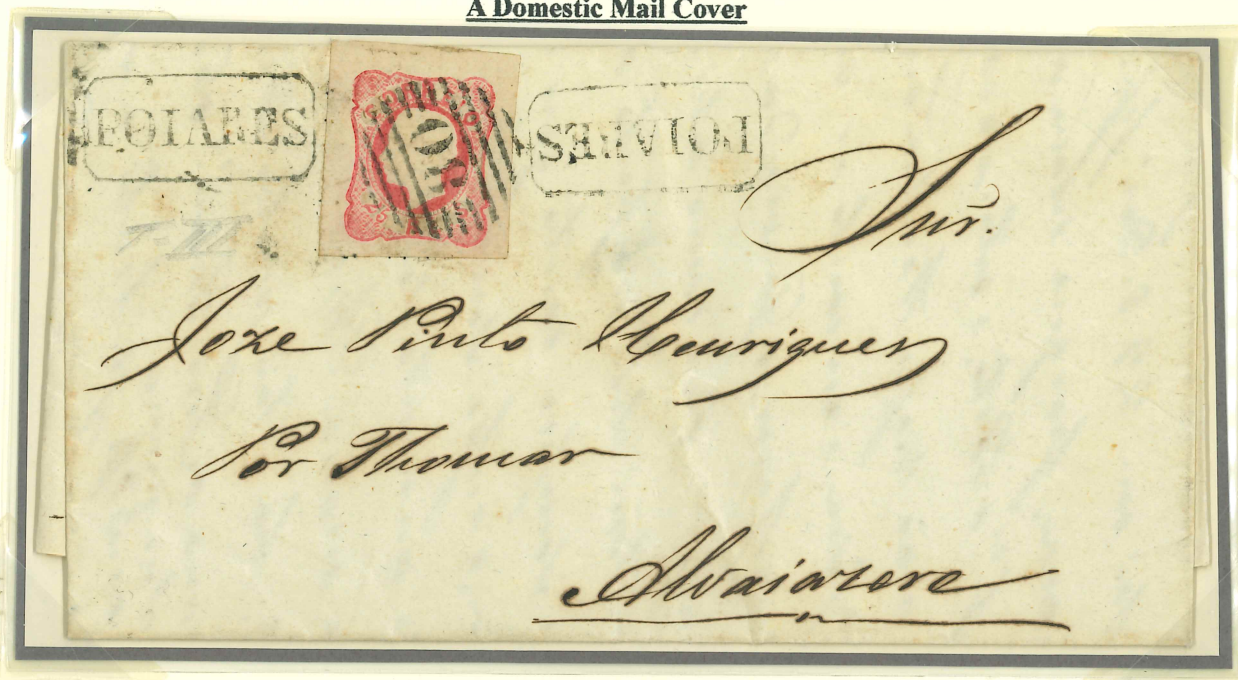 A Domestic Mail Cover
POIARES
POIARES
T-III
Snr.
Joze Pinto Henriques
Por Thomar
Alvaiazere